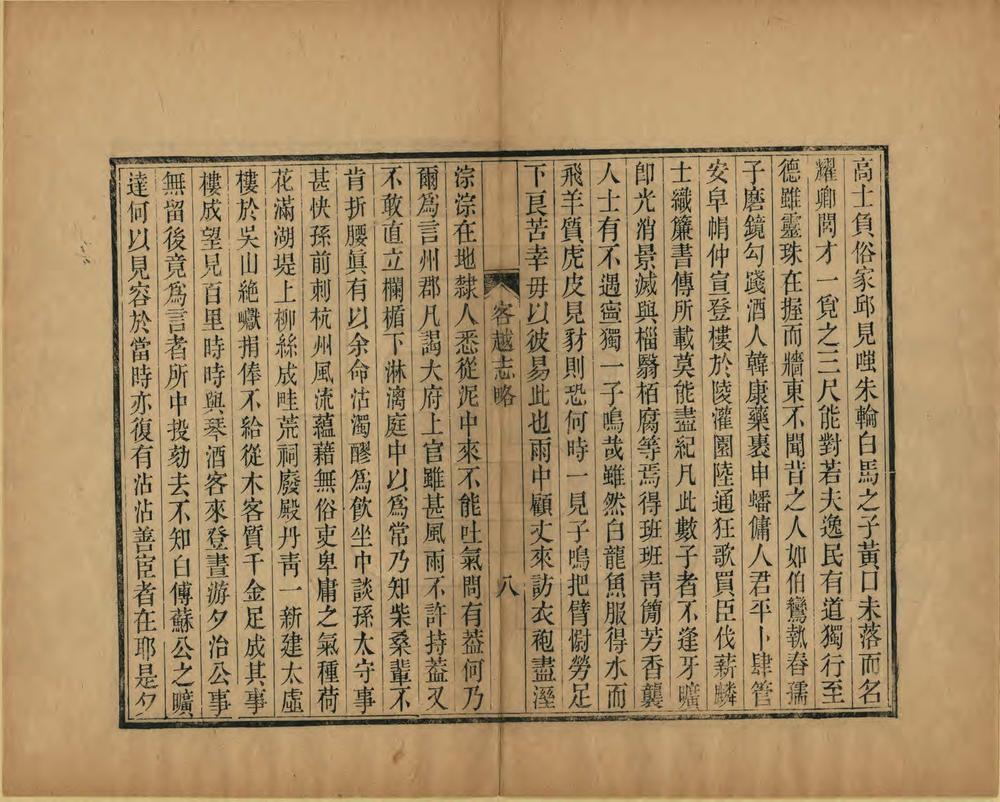 高士負俗家邱見嗤朱輪白馬之子黃口未落而名
耀卿閥才一覓之三尺能對若夫逸民有道獨行至
德雖靈珠在握而牆東不聞昔之人如伯鸞執舂孺
子磨鏡勾踐酒人韓康藥裹申蟠傭人君平卜肆管
安皁帽仲宣登樓於陵灌園陸通狂歌買臣伐薪麟
士織簾書傳所載莫能盡紀凡此數子者不逢牙曠
卽光消景滅與樝翳栢腐等焉得班班靑簡芳香襲
人士有不遇寍獨一子鳴哉雖然白龍魚服得水而
飛羊質虎皮見豺則恐何時一見子鳴把臂慰勞足
下良苦幸毋以彼易此也雨中顧丈來訪衣袍盡溼
客越志略
八
淙淙在地隸人悉從泥中來不能吐氣問有葢何乃
爾爲言州郡凡謁大府上官雖甚風雨不許持葢又
不敢直立欄楯下淋漓庭中以爲常乃知柴桑輩不
肯折腰眞有以余命沽濁醪爲飮坐中談孫太守事
甚快孫前刺杭州風流蘊藉無俗吏卑庸之氣種荷
花滿湖堤上柳絲成畦荒祠廢殿丹靑一新建太虛
樓於吳山絶巘捐俸不給從木客質千金足成其事
樓成望見百里時時與琴酒客來登晝游夕治公事
無留後竟爲言者所中投劾去不知白傅蘇公之曠
達何以見容於當時亦復有沾沾善宦者在耶是夕